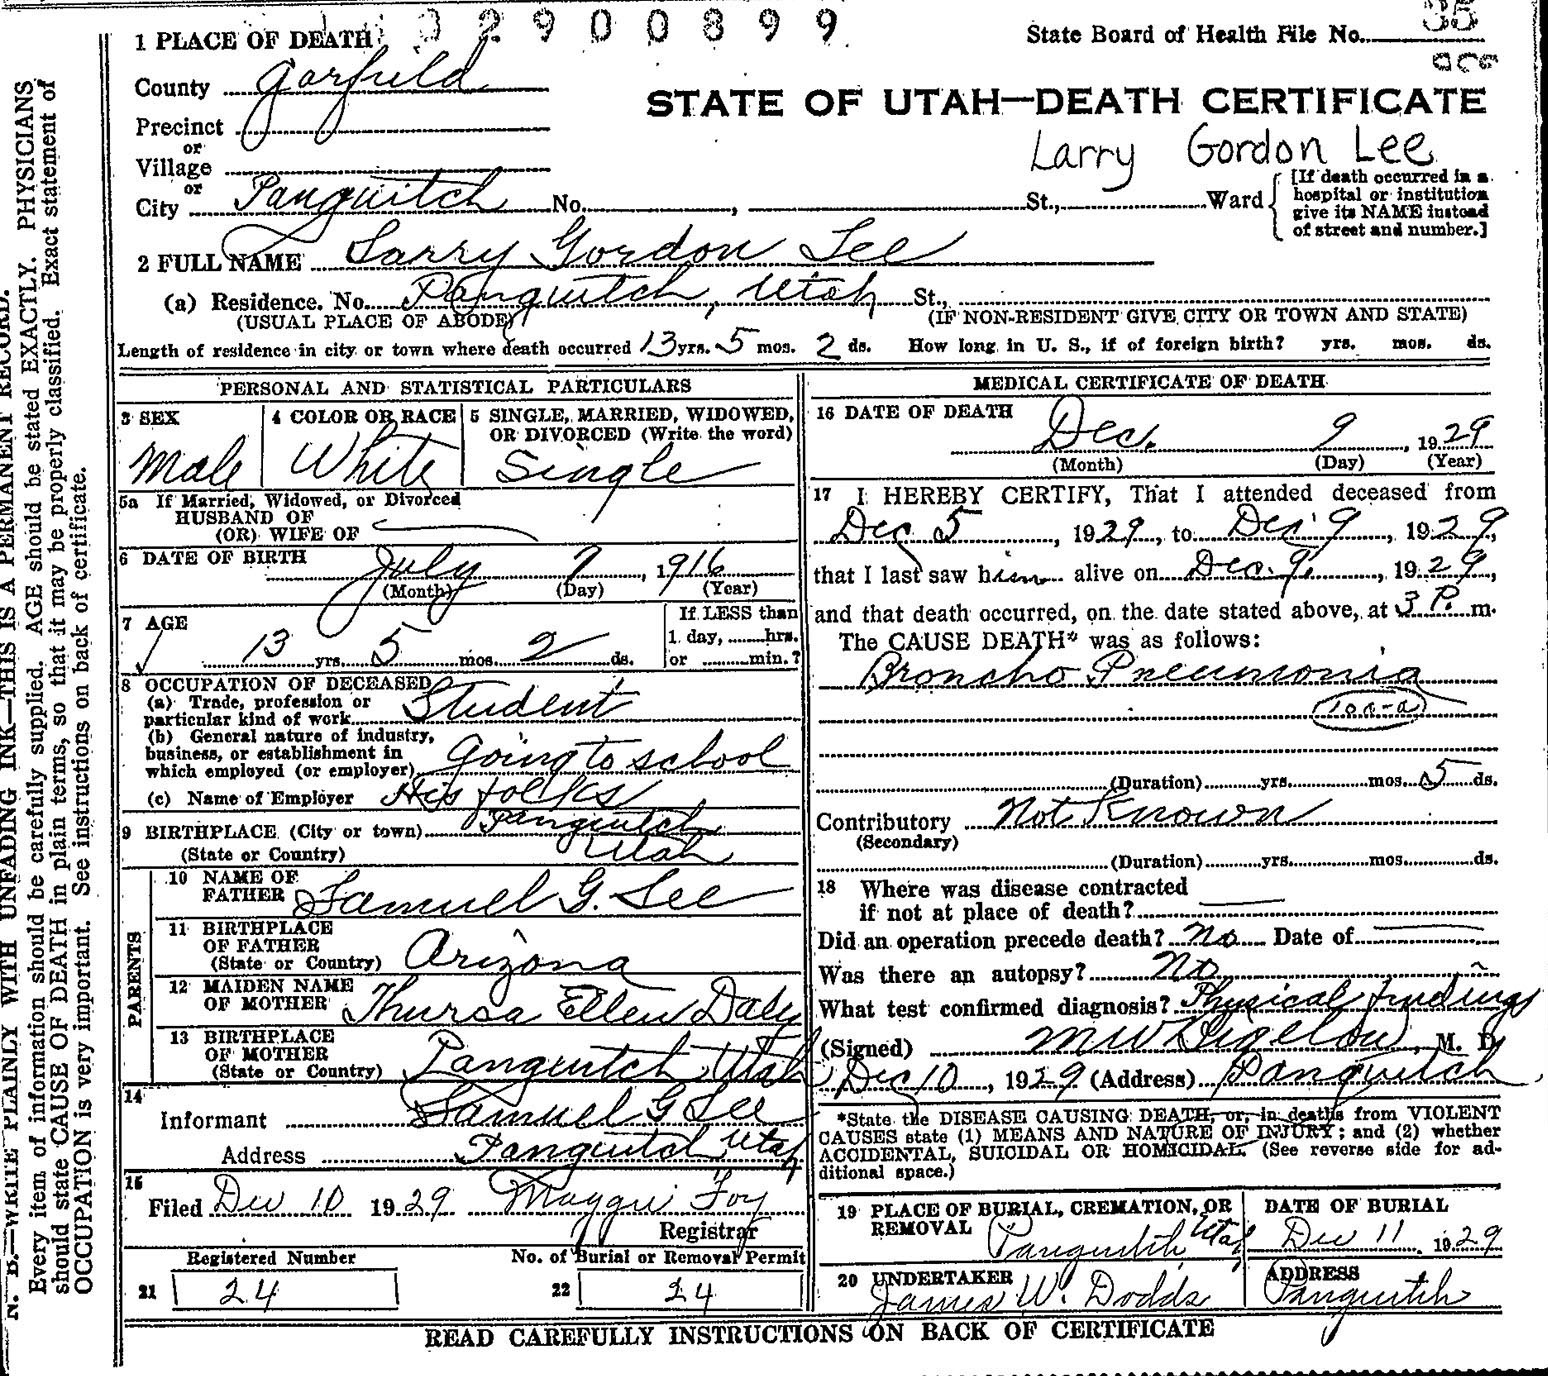 N. B.—WRITE PLAINLY WITH UNFADING INK—THIS IS A PERMANENT RECORD.
Every item of information should be carefully supplied. AGE should be stated EXACTLY. PHYSICIANS
should state CAUSE OF DEATH in plain terms, so that it may be properly classified. Exact statement of
OCCUPATION is very important. See instructions on back of certificate.
2900899
1 PLACE OF DEATH
State Board of Health File No.
County Garfield
STATE OF UTAH—DEATH CERTIFICATE
Precinct
Larry Gordon Lee
or
Village
or
City Panguitch No. , St., Ward
[If death occurred in a
hospital or institution
give its NAME instead
of street and number.]
2 FULL NAME Larry Gordon Lee
(a) Residence. No. Panguitch, Utah St.,
(USUAL PLACE OF ABODE) (IF NON-RESIDENT GIVE CITY OR TOWN AND STATE)
Length of residence in city or town where death occurred 13 yrs. 5 mos. 2 ds. How long in U. S., if of foreign birth? yrs. mos. ds.
PERSONAL AND STATISTICAL PARTICULARS
3 SEX
Male
4 COLOR OR RACE
White
5 SINGLE, MARRIED, WIDOWED,
OR DIVORCED (Write the word)
Single
5a If Married, Widowed, or Divorced
HUSBAND OF
(OR) WIFE OF
6 DATE OF BIRTH July 7, 1916
(Month) (Day) (Year)
7 AGE
13 yrs. 5 mos. 2 ds.
If LESS than
1 day, hrs.
or min.?
8 OCCUPATION OF DECEASED
(a) Trade, profession or
particular kind of work Student
(b) General nature of industry,
business, or establishment in
which employed (or employer) Going to school
(c) Name of Employer His folks
9 BIRTHPLACE (City or town) Panguitch
(State or Country) Utah
PARENTS
10 NAME OF
FATHER Samuel G. Lee
11 BIRTHPLACE
OF FATHER
(State or Country) Arizona
12 MAIDEN NAME
OF MOTHER Thursa Ellen Daly
13 BIRTHPLACE
OF MOTHER
(State or Country) Panguitch Utah
14
Informant Samuel G Lee
Address Panguitch Utah
15
Filed Dec 10 1929 Maggie Foy
Registrar
Registered Number
21 24
No. of Burial or Removal Permit
22 24
MEDICAL CERTIFICATE OF DEATH
16 DATE OF DEATH
Dec. 9, 1929
(Month) (Day) (Year)
17 I HEREBY CERTIFY, That I attended deceased from
Dec 5, 1929, to Dec 9, 1929,
that I last saw him alive on Dec. 9, 1929,
and that death occurred, on the date stated above, at 3 P. m.
The CAUSE DEATH* was as follows:
Broncho Pneumonia
100-a
(Duration) yrs. mos. 5 ds.
Contributory Not Known
(Secondary)
(Duration) yrs. mos. ds.
18 Where was disease contracted
if not at place of death?
Did an operation precede death? No Date of
Was there an autopsy? No
What test confirmed diagnosis? Physical findings
(Signed) M W Bigelow, M. D.
Dec 10, 1929 (Address) Panguitch
*State the DISEASE CAUSING DEATH, or, in deaths from VIOLENT
CAUSES state (1) MEANS AND NATURE OF INJURY; and (2) whether
ACCIDENTAL, SUICIDAL OR HOMICIDAL. (See reverse side for ad-
ditional space.)
19 PLACE OF BURIAL, CREMATION, OR
REMOVAL Panguitch Utah
DATE OF BURIAL
Dec 11 1929
20 UNDERTAKER
James W. Dodds
ADDRESS
Panguitch
READ CAREFULLY INSTRUCTIONS ON BACK OF CERTIFICATE